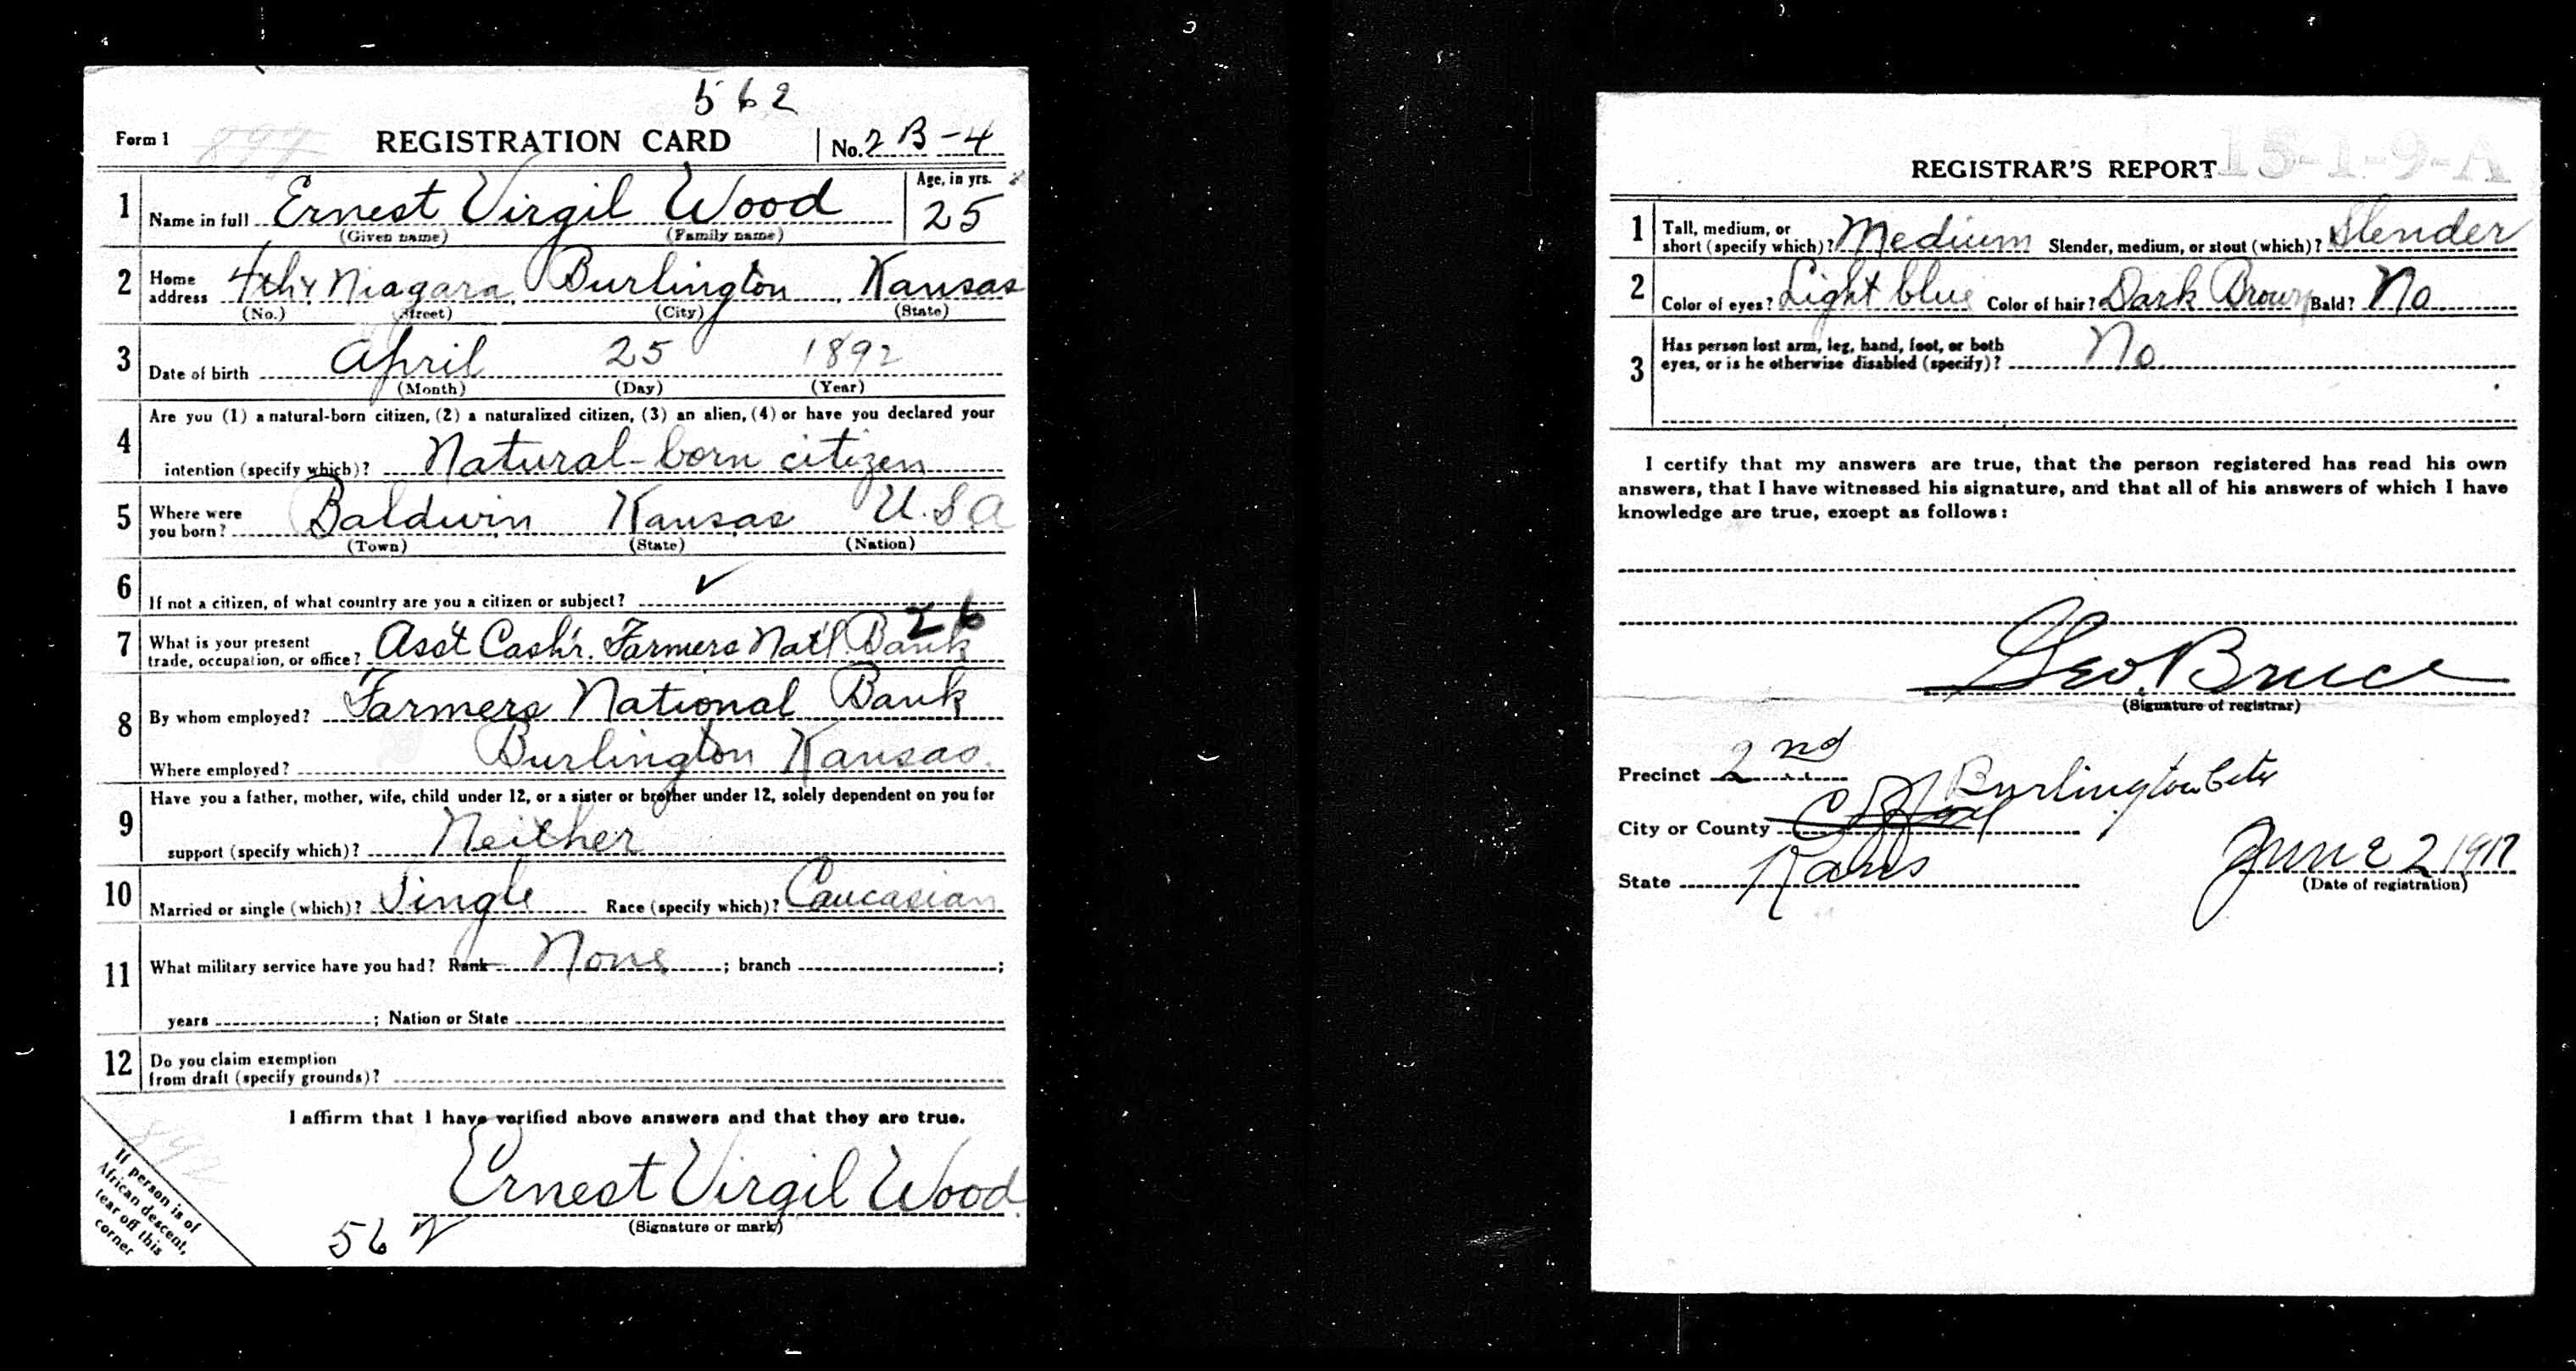 562
Form 1 REGISTRATION CARD No. 2 B-4
1 Name in full Ernest Virgil Wood Age, in yrs. 25
(Given name) (Family name)
2 Home address 4th & Niagara, Burlington, Kansas
(No.) (Street) (City) (State)
3 Date of birth April 25 1892
(Month) (Day) (Year)
4 Are you (1) a natural-born citizen, (2) a naturalized citizen, (3) an alien, (4) or have you declared your
intention (specify which)? Natural-born citizen
5 Where were you born? Baldwin Kansas U.S.A
(Town) (State) (Nation)
6 If not a citizen, of what country are you a citizen or subject? ✓
26
7 What is your present trade, occupation, or office? Ass't Cash'r. Farmers Nat'l. Bank
8 By whom employed? Farmers National Bank
Where employed? Burlington Kansas.
9 Have you a father, mother, wife, child under 12, or a sister or brother under 12, solely dependent on you for
support (specify which)? Neither
10 Married or single (which)? Single Race (specify which)? Caucasian
11 What military service have you had? Rank None ; branch ;
years ; Nation or State
12 Do you claim exemption
from draft (specify grounds)?
I affirm that I have verified above answers and that they are true.
Ernest Virgil Wood
(Signature or mark)
562
If person is of
African descent,
tear off this
corner
15-1-9-A
REGISTRAR'S REPORT
1 Tall, medium, or short (specify which)? Medium Slender, medium, or stout (which)? Slender
2 Color of eyes? Light blue Color of hair? Dark Brown Bald? No
3 Has person lost arm, leg, hand, foot, or both
eyes, or is he otherwise disabled (specify)? No
I certify that my answers are true, that the person registered has read his own
answers, that I have witnessed his signature, and that all of his answers of which I have
knowledge are true, except as follows:
Geo. Bruce
(Signature of registrar)
Precinct 2nd
City or County Burlington City
State Kans June 2 1917
(Date of registration)